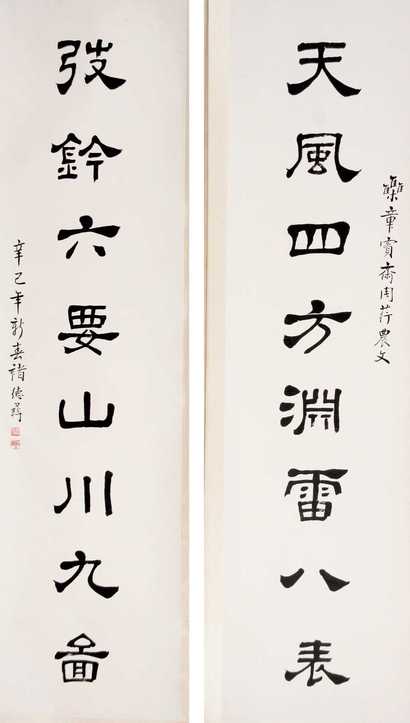 雧章實齋周荇農文
天風四方淵雷八表
弢鈐六要山川九啚
辛巳年新春褚德彝